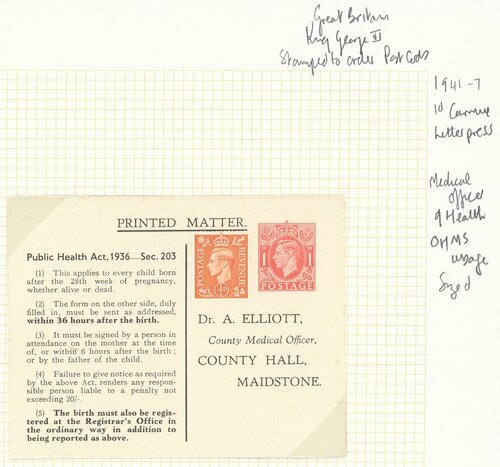 Great Britain
King George VI
Stamped to order Post Cards
1941-7
1d Carmine
Letterpress
Medical
Officer
of Health
OHMS
usage
Sized
PRINTED MATTER.
Public Health Act, 1936—Sec. 203
(1) This applies to every child born
after the 28th week of pregnancy,
whether alive or dead.
(2) The form on the other side, duly
filled in, must be sent as addressed,
within 36 hours after the birth.
(3) It must be signed by a person in
attendance on the mother at the time
of, or within 6 hours after the birth;
or by the father of the child.
(4) Failure to give notice as required
by the above Act, renders any respon-
sible person liable to a penalty not
exceeding 20/-.
(5) The birth must also be regis-
tered at the Registrar's Office in
the ordinary way in addition to
being reported as above.
POSTAGE
REVENUE
1 D 1 D
POSTAGE
Dr. A. ELLIOTT,
County Medical Officer,
COUNTY HALL,
MAIDSTONE.